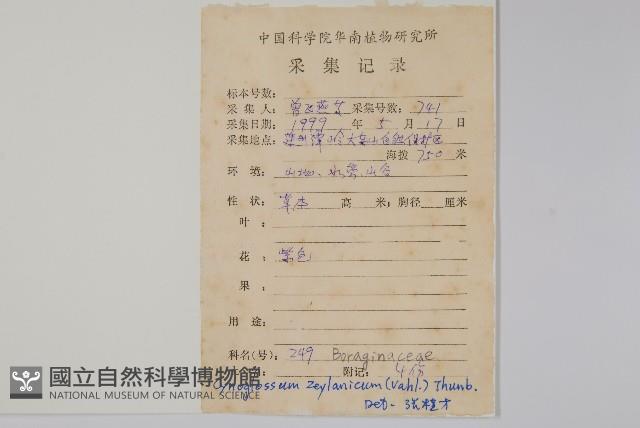 中国科学院华南植物研究所
采集记录
标本号数:
采集人: 曾飞燕 采集号数: 741
采集日期: 1999 年 5 月 17 日
采集地点: 自然保护区
海拨 750 米
环境: 山地、水旁、山谷
性状: 草本 高 米; 胸径 厘米
叶:
花: 紫色
果:
用途:
科名(号): 249 Boraginaceae
附记: 4份
Cynoglossum zeylanicum (Vahl.) Thunb.
Det.
國立自然科學博物館
NATIONAL MUSEUM OF NATURAL SCIENCE